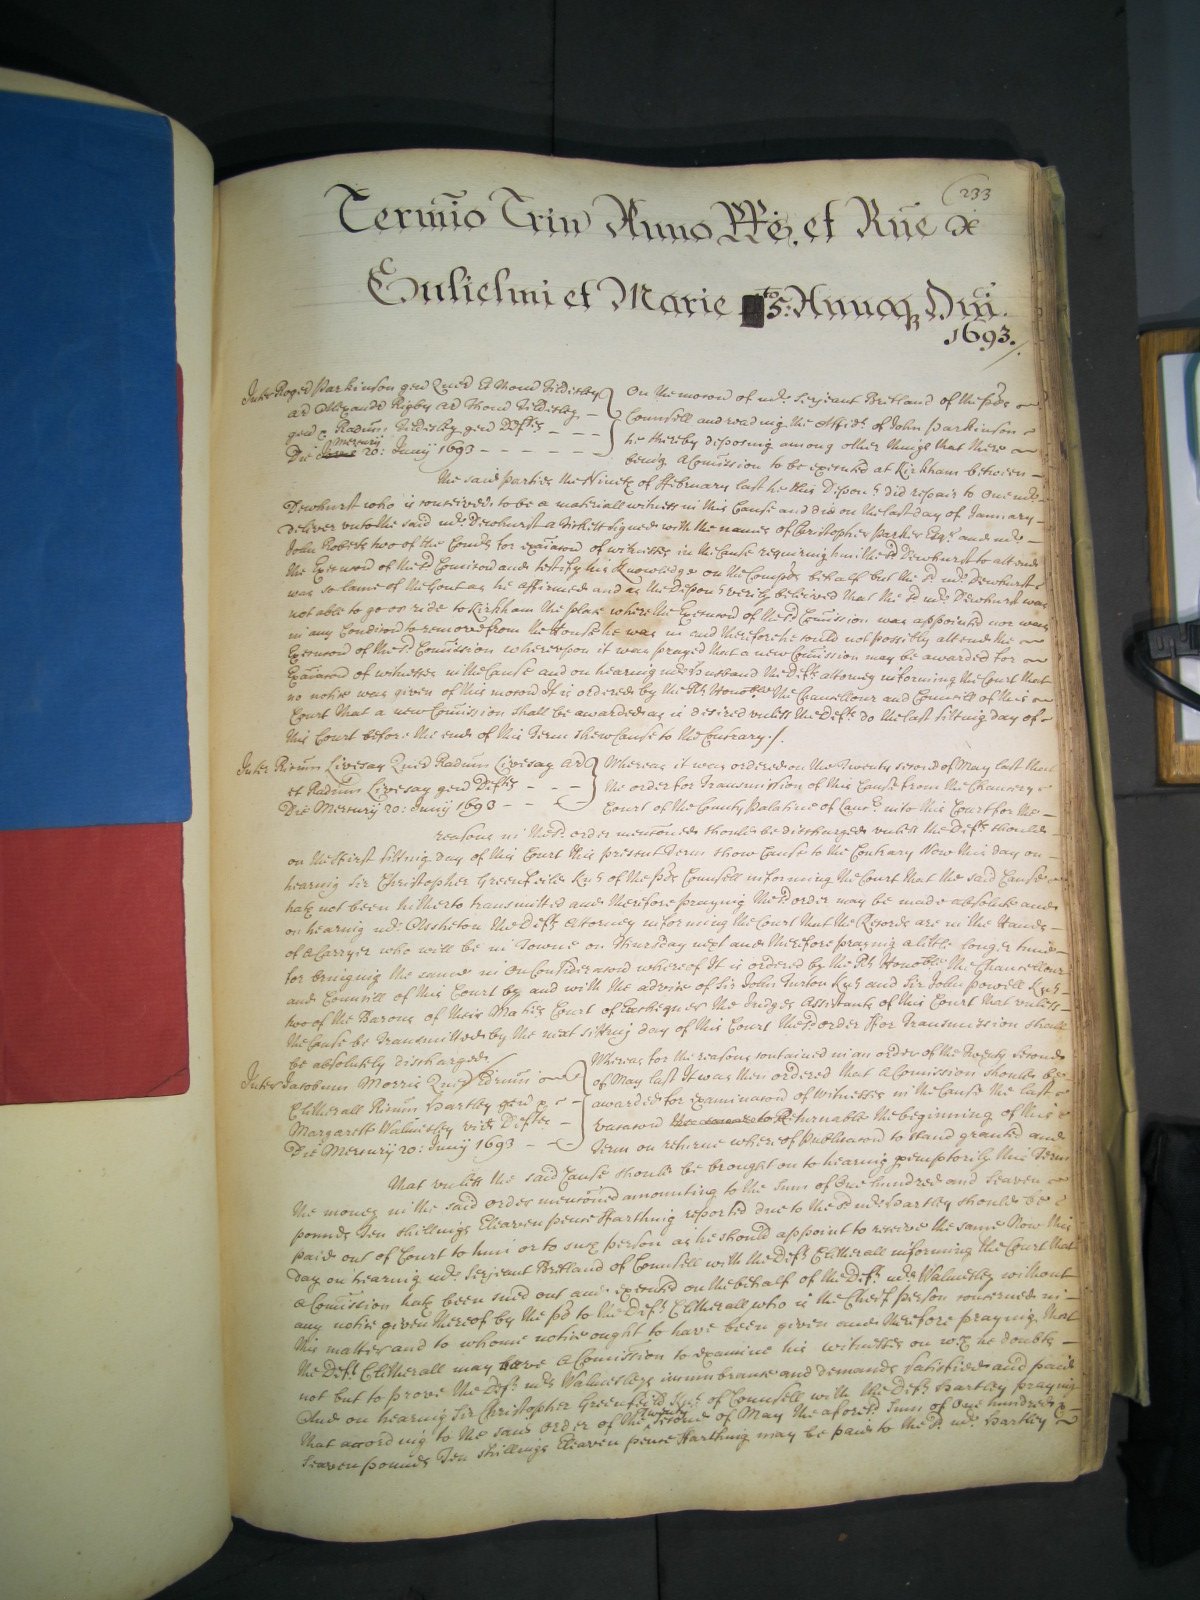 233
Termio Trin Anno RRs. et Rne &
Gulielmi et Marie 5to: Annoq Dni.
1693.
Inter Roger Parkinson gen Quer Et Thomã Tildisley
ar Alexandr Rigby ar Thomã Tildisley
gen & Radum Tildisley gen Defts
Die Mercury 20: Junij 1693
On the mocon of mr. Serjeant Bretland of the pts
Counsell and reading the Affidt. of John Parkinson
he thereby deposing among other things that there
being a Comission to be executed at Kirkham between
the said parties the Ninth of February last he this Depont did repair to One mr.
Dewhurst who is conceived to be a materiall witness in this Cause and did on the last day of January
deliver unto the said mr. Dewhurst a tickett signed with the names of Christopher Parker Esqr. and mr.
John Roberts two of the Comrs for exaiacon of witnesses in the Cause requiring him the sd Dewhurst to attend
the Execucon of the sd Comicon and testify his Knowledge on the Complts behalf but the sd mr. Dewhurst
was so lame of the Gout as he affirmed and as the Depont verily beleived that the sd mr. Dewhurst was
not able to go or ride to Kirkham the place where the Execucon of the sd Comission was appointed nor was
in any Condicon to remove from the House he was in and therefore he could not possibly attend the
Execucon of the sd Comission whereupon it was prayed that a new Comission may be awarded for
Exaiacon of witnesses in the Cause and on hearing mr. Husband the Defts attorney informing the Court that
no notice was given of this mocon It is ordered by the Rt Honoble the Chancellour and Councill of this
Court that a new Comission shall be awarded as is desired unless the Defts do the last sitting day of
this Court before the end of this Term shew Cause to the Contrary:/.
Inter Ricum Livesay Quer Radum Livesay ar
et Radum Livesay gen Defts
Die Mercury 20: Junij 1693
Whereas it was ordered on the Twenty second of May last that
the order for Transmission of this Cause from the Chancery
Court of the County Palatine of Lancr. into this Court for the
reasons in the sd. order menconed should be discharged unless the Defts should
on the first sitting day of this Court this present Term show Cause to the Contrary Now this day on
hearing Sir Christopher Greenfeild Knt of the pts Counsell informing the Court that the said Cause
hath not been hitherto transmitted and therefore praying the sd order may be made absolute and
on hearing mr. Assheton the Defts Attorney informing the Court that the Records are in the Hands
of a Carryer who will be in Towne on Thursday next and therefore praying a little longer time
for bringing the same in On Consideracon whereof It is ordered by the Rt Honoble the Chancellour
and Councill of this Court by and with the advice of Sir John Turton Knt and Sir John Powell Knt
two of the Barons of their Maties Court of Exchequer the Judges Assistants of this Court that unless
the Cause be transmitted by the next sitting day of this Court the sd order ffor Transmission shall
be absolutely discharged
Inter Jacobum Morris Quer Edrum
Clitherall Ricum Hartley gen &
Margarett Walmesley vid Deftes
Die Mercury 20: Junij 1693
Whereas for the reasons contained in an order of the Twenty Second
of May last It was then ordered that a Comission should be
awarded for examinacon of witnesses in the Cause the last
vacacon Returnable the beginning of this
Term on returne whereof Publicacon to stand granted and
that unless the said Cause should be brought on to hearing peremptorily this Term
the money in the said order menconed amounting to the sum of One hundred and Seaven
pounds Ten shillings Eleaven pence Farthing reported due to the sd mr. Hartley should be
paid out of Court to him or to such person as he should appoint to receive the same Now this
day on hearing mr. Serjeant Bretland of Counsell with the Deft. Clitherall informing the Court that
a Comission hath been sued out and executed on the behalf of the Deft. mrs Walmesley without
any notice given thereof by the pt to the Deft. Clitherall who is the Cheif person concerned in
this matter and to whome notice ought to have been given and therefore praying that
the Deft. Clitherall may have a Comission to examine his witnesses on wch he doubts
not but to prove the Deft. mrs Walmesleys incumbrance and demands satisfied and paid
And on hearing Sir Christopher Greenfeild Knt. of Counsell with the Deft. Hartley praying
that according to the said order of the Twenty second of May the aforesd. sum of One hundred &
Seaven pounds Ten shillings Eleaven pence Farthing may be paid to the sd. mr. Hartley